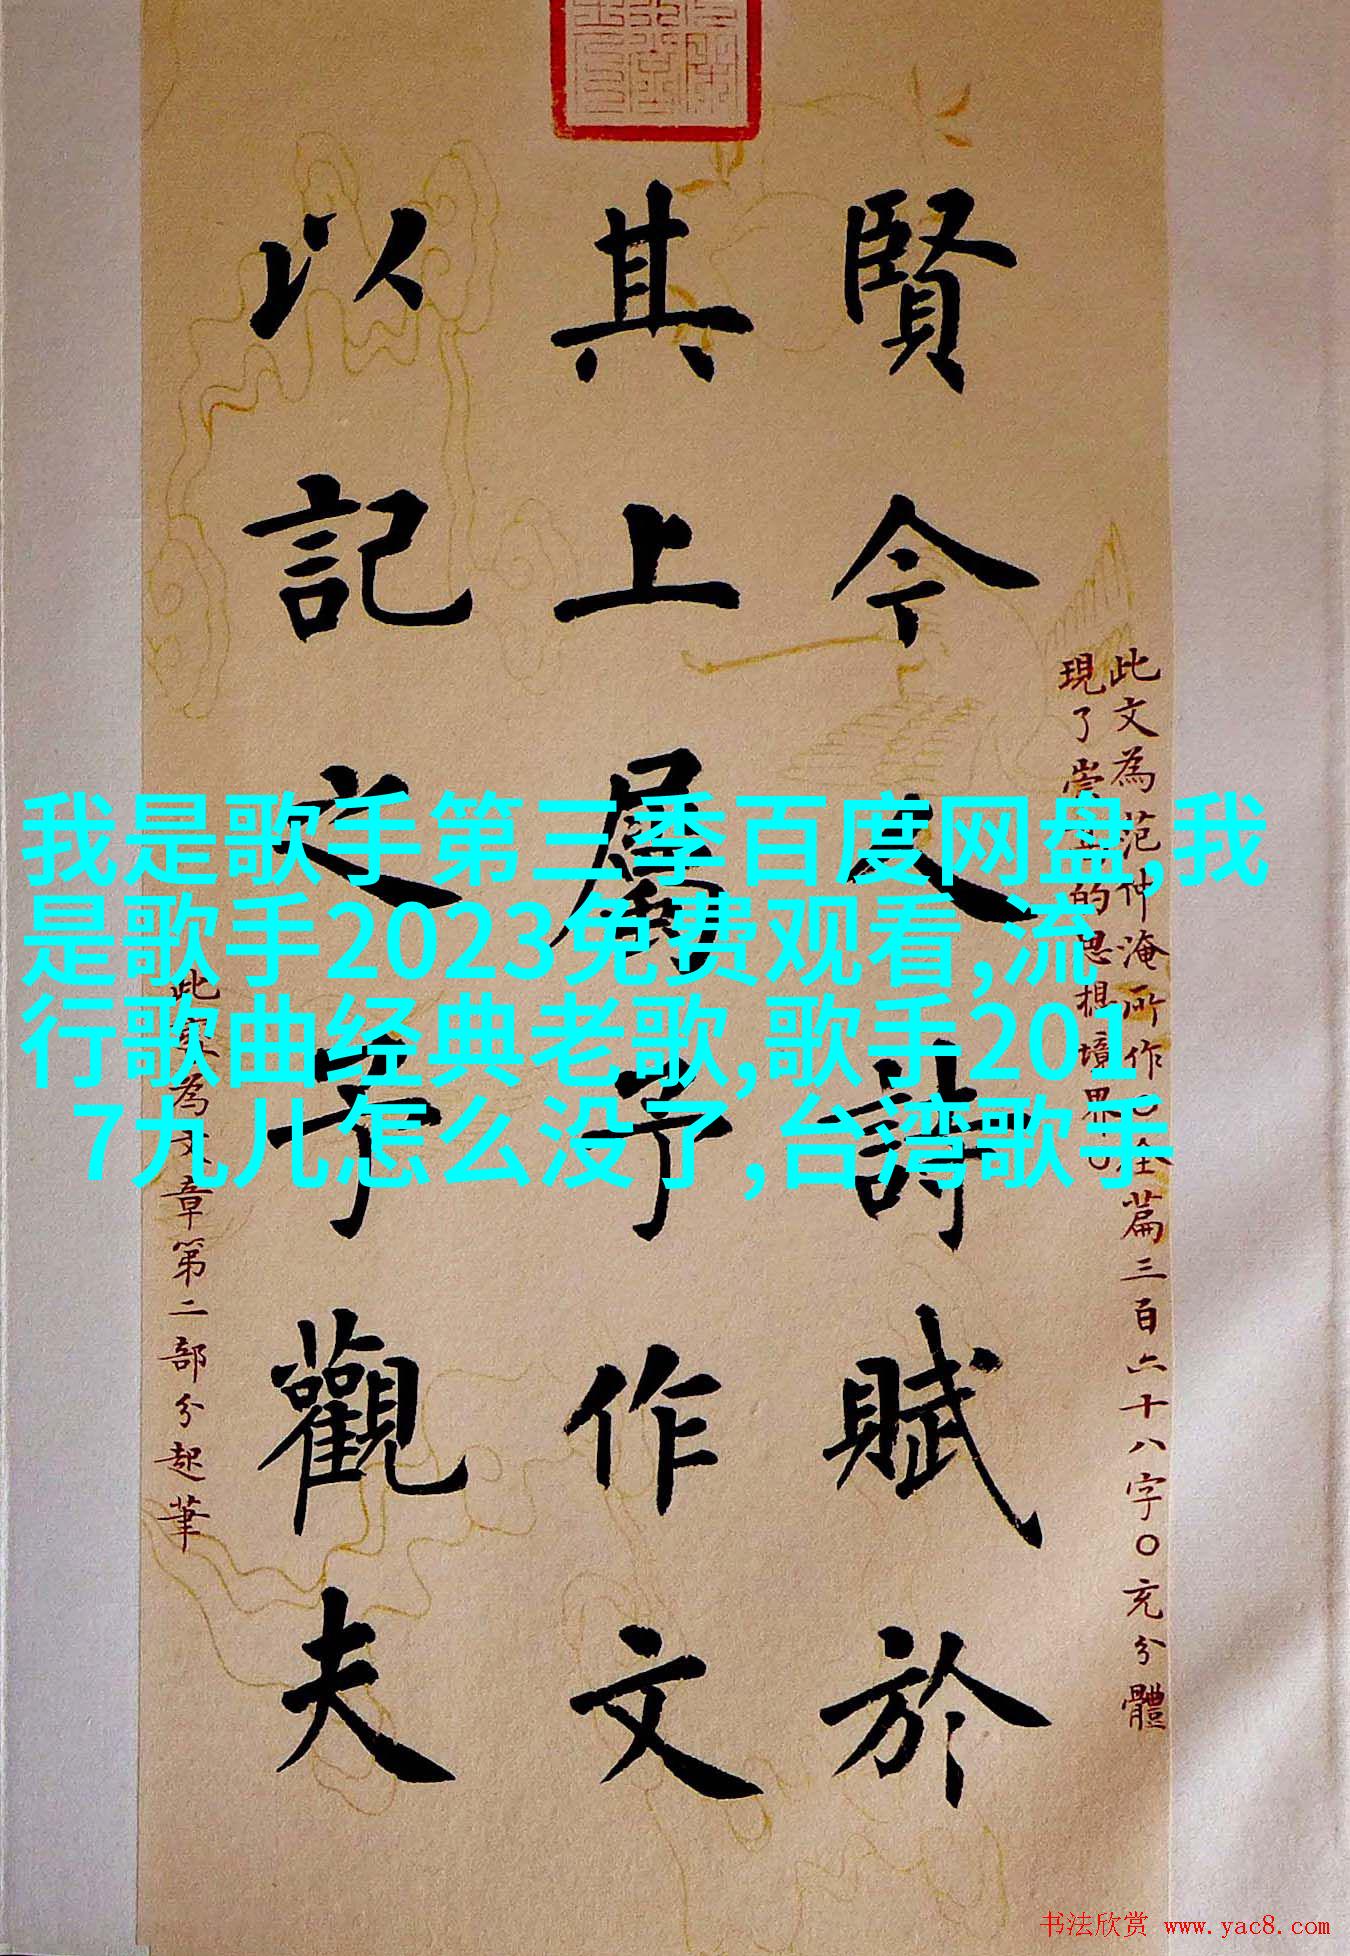 此文為范仲淹所作○全篇三百六十八字○充分體
現了崇高的思想境界○
賢今人詩賦於
其上屬予作文
以記之予觀夫
此實為文章第二部分起筆
我是歌手第三季百度网盘,我
是歌手2023免费观看,流
行歌曲经典老歌,歌手201
7九儿怎么没了,台湾歌手
书法欣赏 www.yac8.com